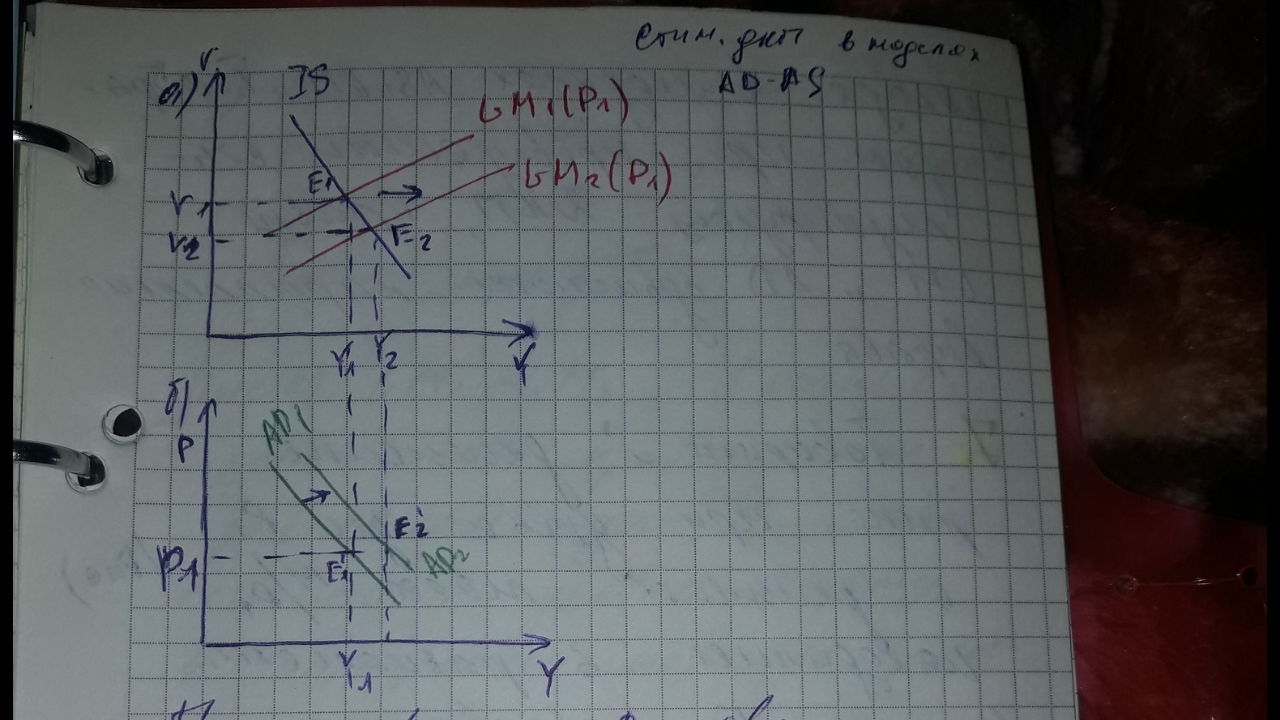 Стим. ДКП в моделях
AD-AS
а) r
IS
LM₁(P₁)
LM₂(P₁)
E₁
r₁
r₂
E₂
Y₁ Y₂ Y
б)
P
AD1
E₂'
P₁
E₁'
AD₂
Y₁ Y